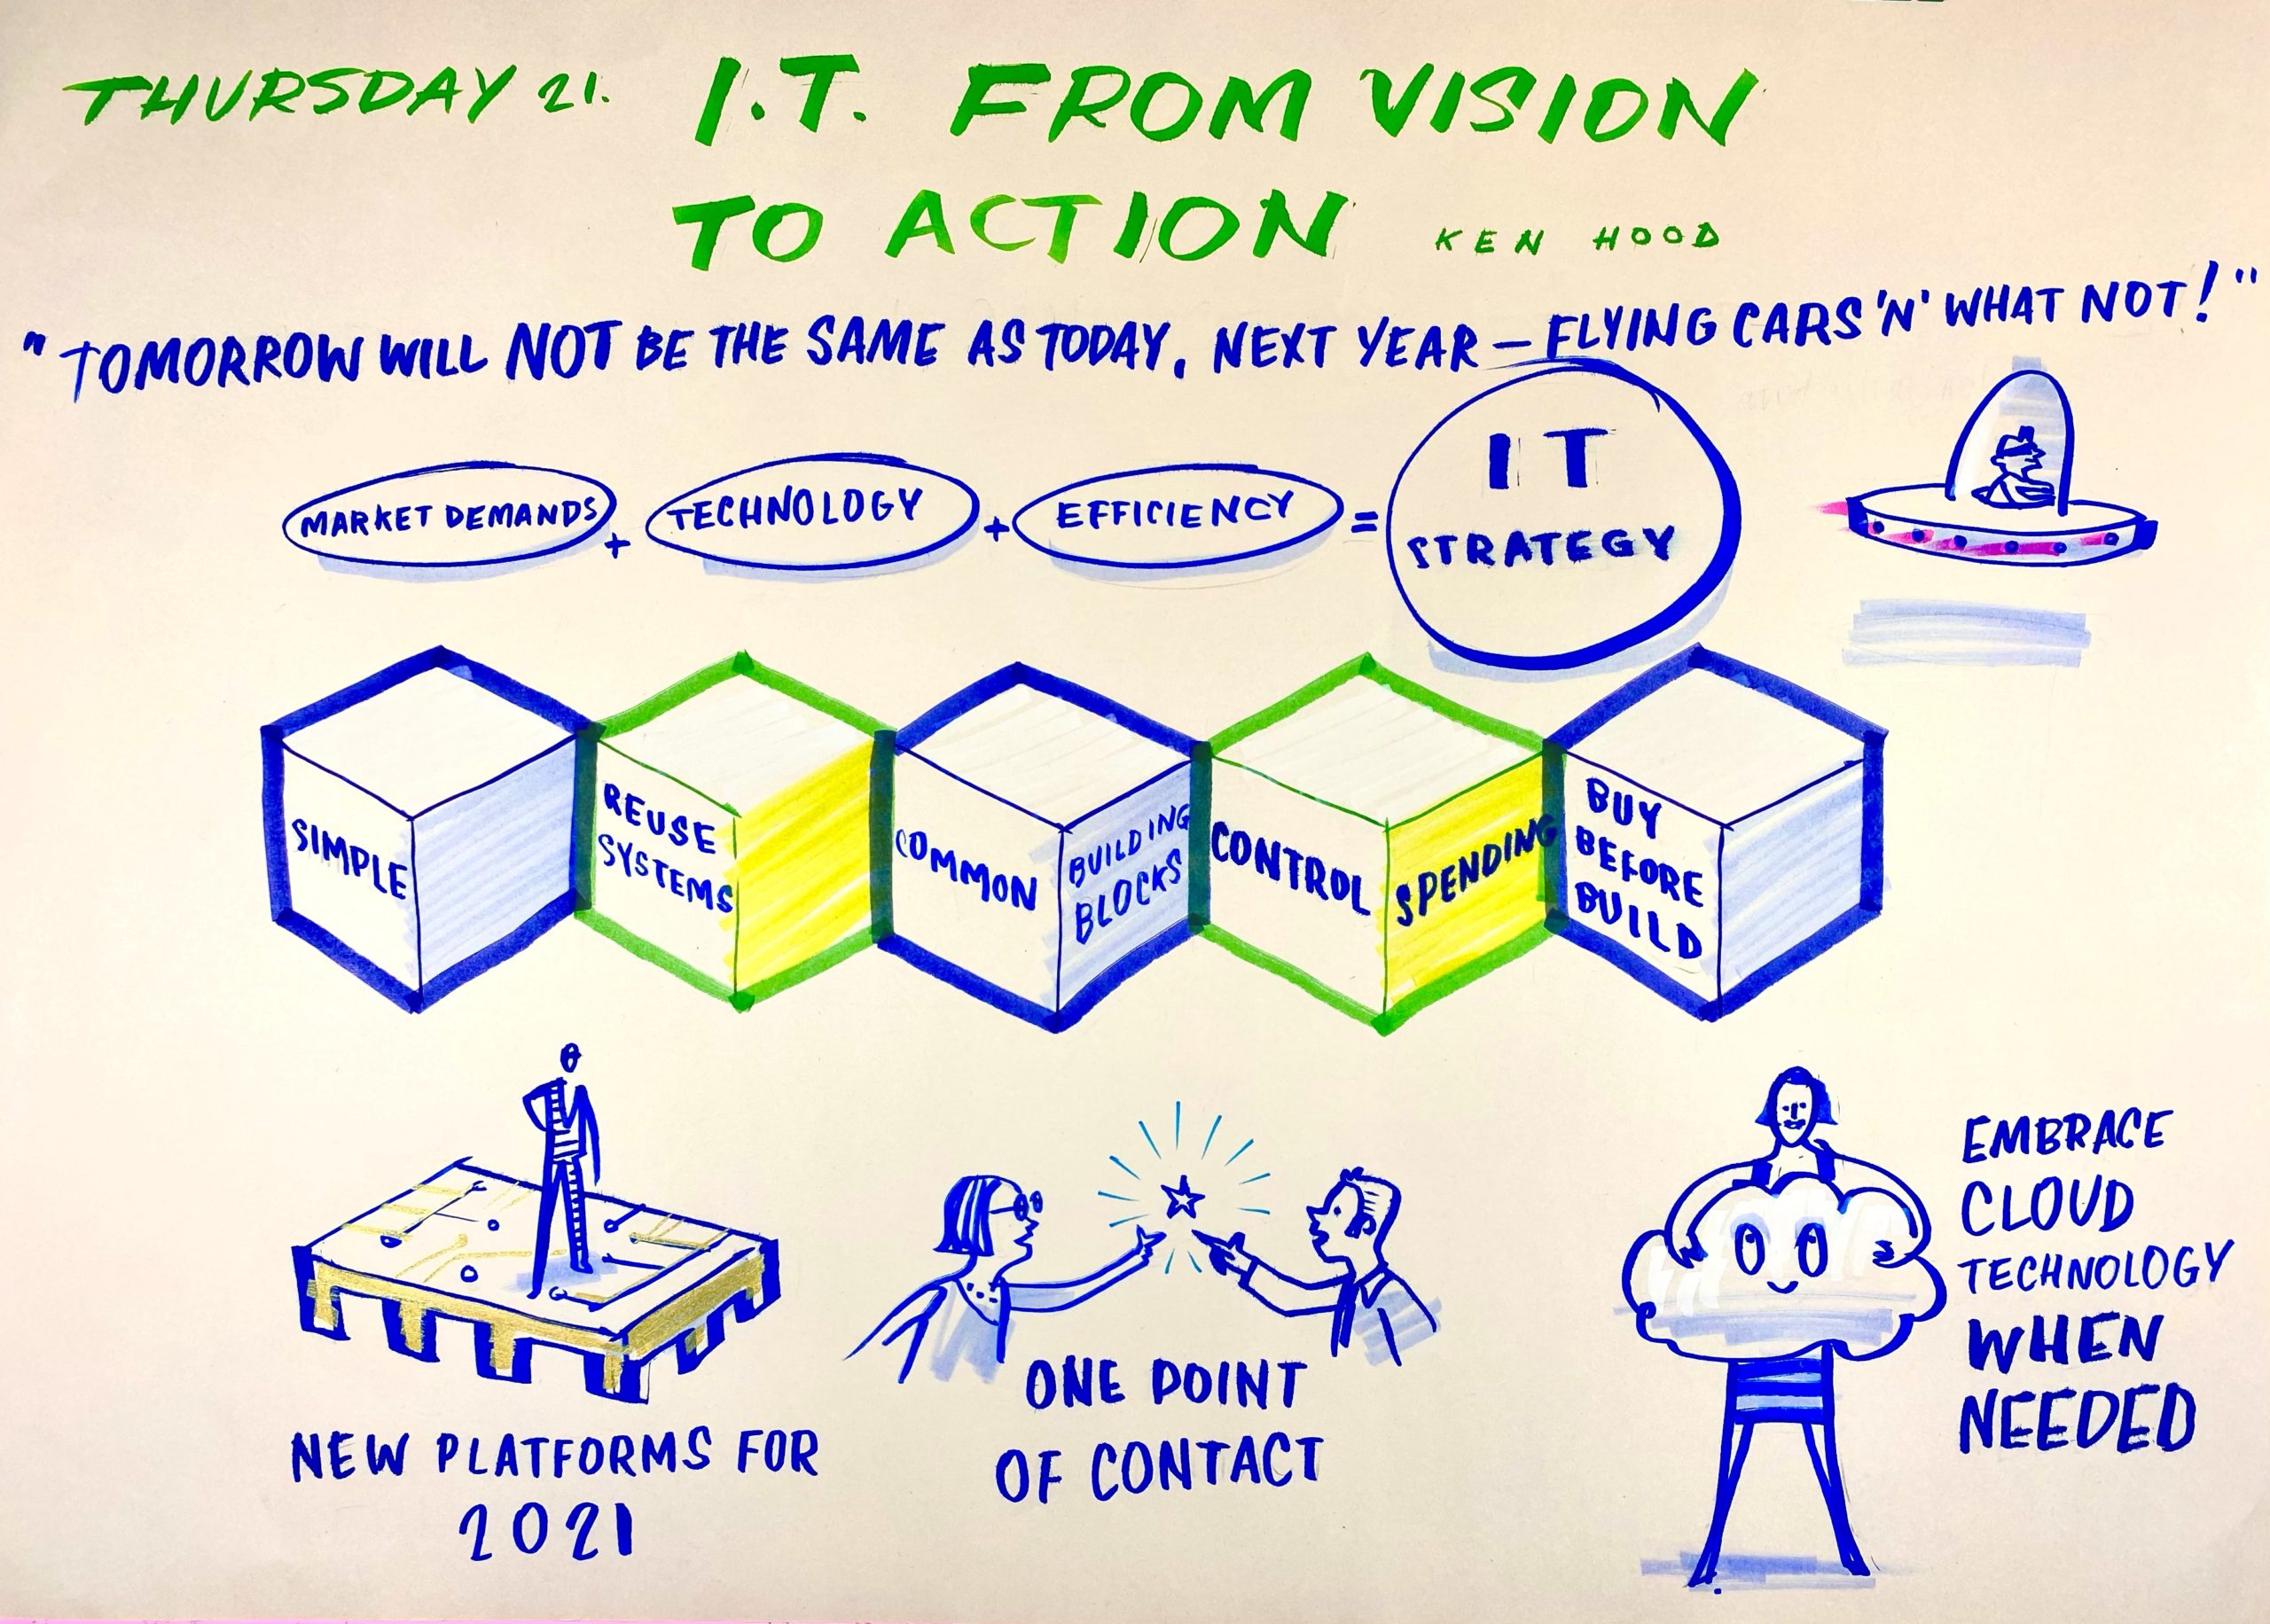 THURSDAY 21. I.T. FROM VISION
TO ACTION KEN HOOD
"TOMORROW WILL NOT BE THE SAME AS TODAY, NEXT YEAR – FLYING CARS 'N' WHAT NOT!"
MARKET DEMANDS + TECHNOLOGY + EFFICIENCY =
IT
STRATEGY
SIMPLE
REUSE
SYSTEMS
COMMON
BUILDING
BLOCKS
CONTROL
SPENDING
BUY
BEFORE
BUILD
NEW PLATFORMS FOR
2021
ONE POINT
OF CONTACT
EMBRACE
CLOUD
TECHNOLOGY
WHEN
NEEDED